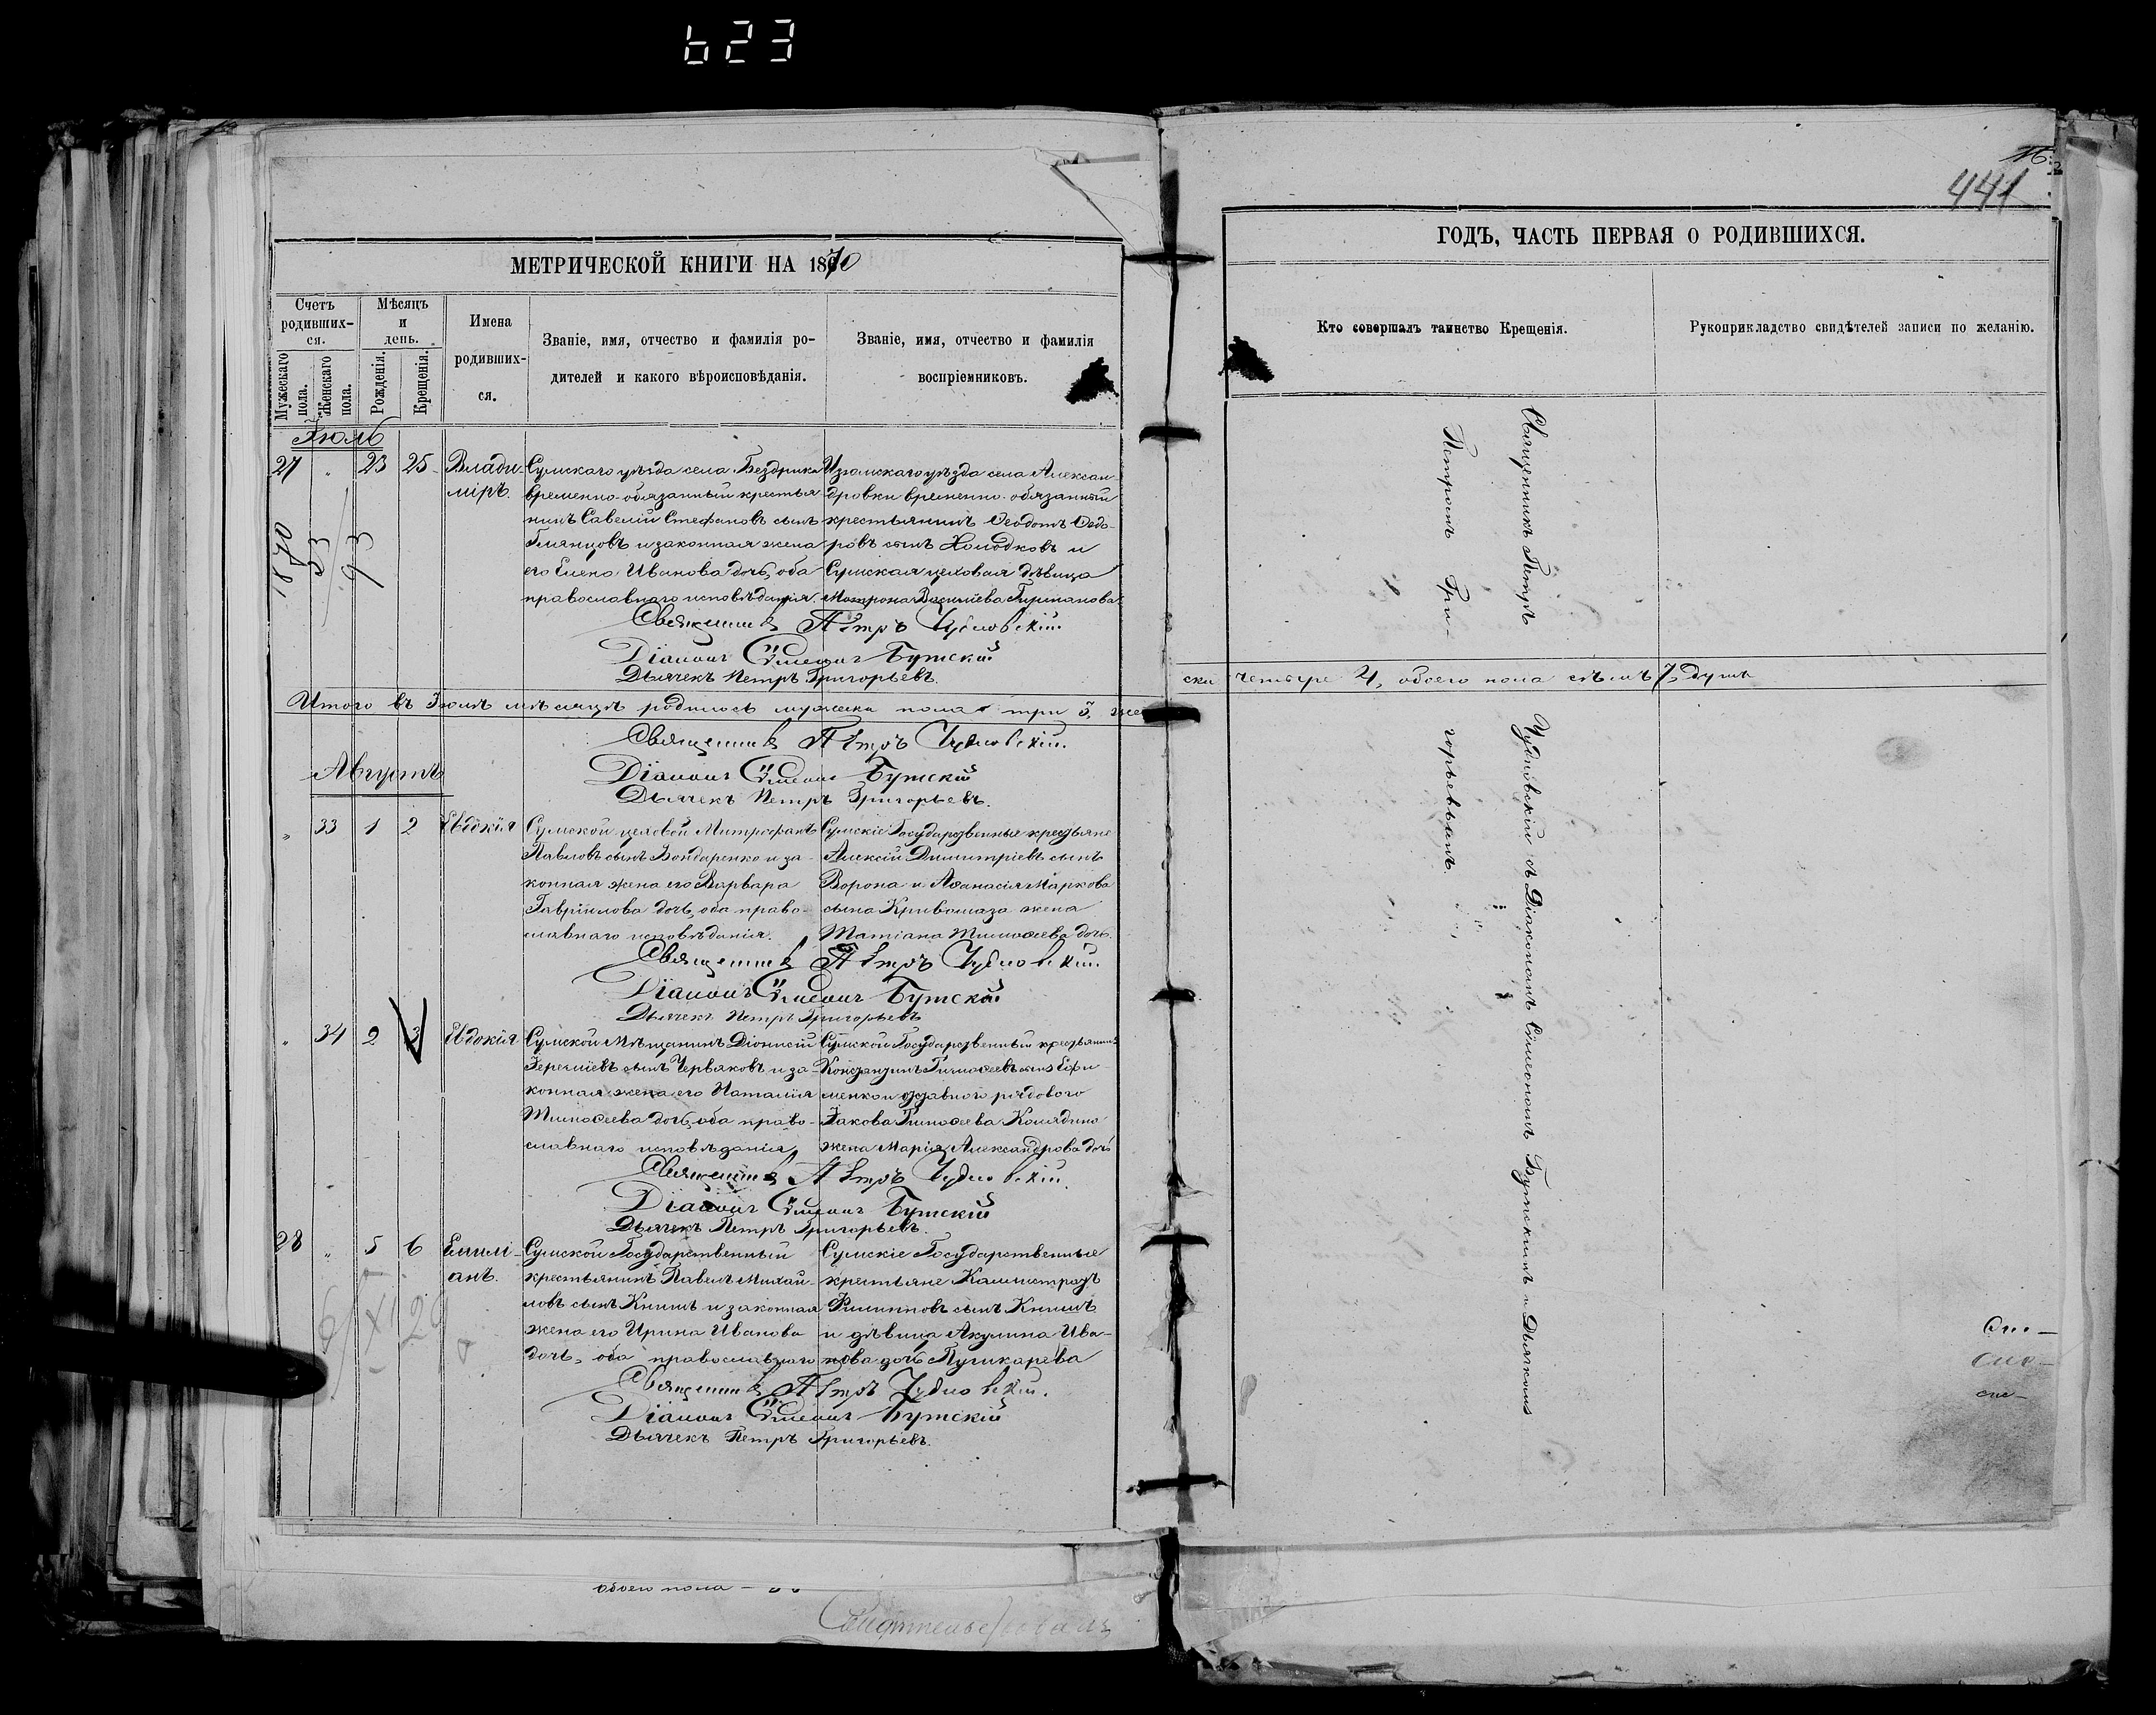 623
441
МЕТРИЧЕСКОЙ КНИГИ НА 1870
Счетъ родивших-ся.
Мужескаго пола.
Женскаго пола.
Мѣсяцъ и день.
Рожденія.
Крещенія.
Имена родивших-ся.
Званіе, имя, отчество и фамилія ро-
дителей и какого вѣроисповѣданія.
Званіе, имя, отчество и фамилія
воспріемниковъ.
Іюль
27 „ 23 25 Влади-
міръ.
Сумскаго уѣзда села Бездрика
временно-обязанный крестья
нинъ Савелій Стефановъ сынъ
и законная жена
его Елена Иванова дочь, оба
православнаго исповѣданія.
Изюмскаго уѣзда села Алексан-
дровки временно-обязанный
крестьянинъ Ѳеодотъ Ѳедо-
ровъ сынъ Холодковъ и
Сумская цеховая дѣвица
Матрона Василіева
Священникъ Петръ Чудновскій.
Діаконъ Сѵмеонъ Бутскій
Дьячекъ Петръ Григорьевъ.
1870
33
93
Итого въ Іюлѣ мѣсяцѣ родилось мужеска пола три 3, жен
Священникъ Петръ Чудновскій.
Діаконъ Сѵмеонъ Бутскій
Дьячекъ Петръ Григорьевъ.
Августъ
„ 33 1 2 Евдокія
Сумской цеховой Митрофанъ
Павловъ сынъ Бондаренко и за-
конная жена его Варвара
Гавріилова дочь, оба право-
славнаго исповѣданія.
Сумскіе Государственные крестьяне
Алексій Димитріевъ сынъ
Ворона и Аѳанасія Маркова
сына Кривошаза жена
Татіана Тимоѳеева дочь.
Священникъ Петръ Чудновскій.
Діаконъ Сѵмеонъ Бутскій
Дьячекъ Петръ Григорьевъ
„ 34 2 3 Евдокія
Сумской Мѣщанинъ Діонисій
Іереміевъ сынъ Червяковъ и за-
конная жена его Наталія
Тимоѳеева дочь, оба право-
славнаго исповѣданія,
Сумской Государственный крестьянинъ
Константинъ Тимоѳеевъ сынъ Ефи-
менко и отставного рядового
Іакова Тимоѳеева Колядино
жена Марія Александрова дочь
Священникъ Петръ Чудновскій.
Діаконъ Сѵмеонъ Бутскій
Дьячекъ Петръ Григорьевъ.
28 „ 5 6 Емилі-
анъ.
Сумской Государственный
крестьянинъ Павелъ Михай-
ловъ сынъ Книшъ и законная
жена его Ирина Иванова
дочь, оба православнаго
Сумскіе Государственные
крестьяне Каллистратъ
Филипповъ сынъ Книшъ
и дѣвица Акулина Ива-
нова дочь Пушкарева
Священникъ Петръ Чудновскій.
Діаконъ Сѵмеонъ Бутскій
Дьячекъ Петръ Григорьевъ.
обоего пола —
Свидѣтельствовалъ
ГОДЪ, ЧАСТЬ ПЕРВАЯ О РОДИВШИХСЯ.
Кто совершалъ таинство Крещенія.
Рукоприкладство свидѣтелей записи по желанію.
Священникъ Петръ Чудновскій съ Діакономъ Сѵмеономъ Бутскимъ и Дьячкомъ
Петромъ Григорьевымъ.
ски четыре 4, обоего пола семь 7, душъ